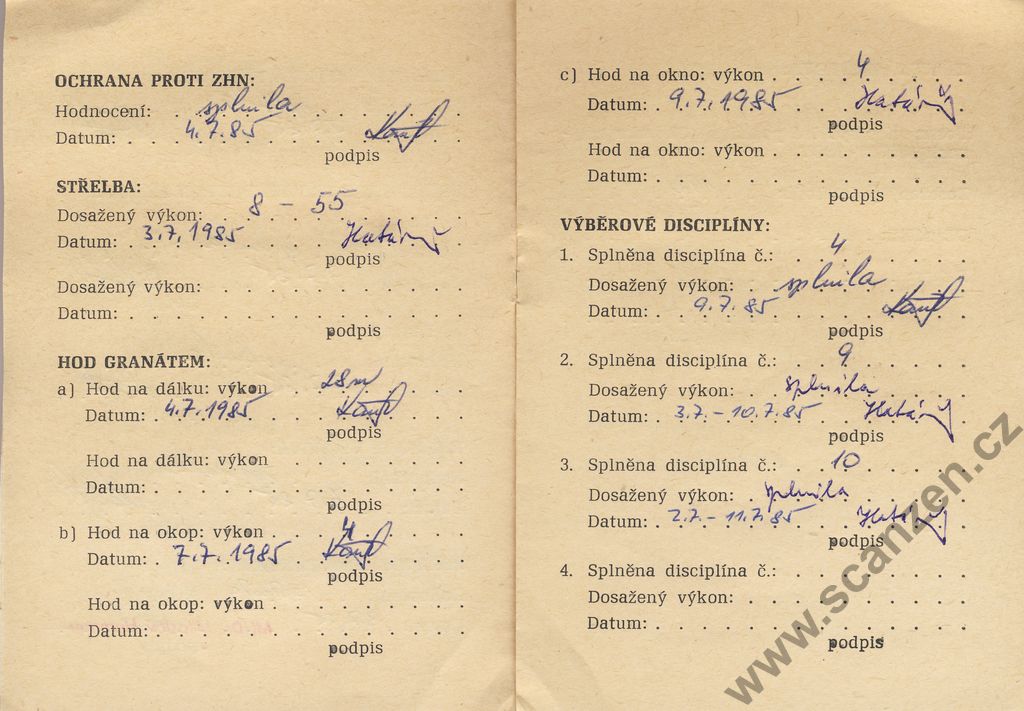 OCHRANA PROTI ZHN:
Hodnocení: splnila
Datum: 4.7.85
podpis
STŘELBA:
Dosažený výkon: 8 – 55
Datum: 3.7.1985
podpis
Dosažený výkon:
Datum:
podpis
HOD GRANÁTEM:
a) Hod na dálku: výkon 28m
Datum: 4.7.1985
podpis
Hod na dálku: výkon
Datum:
podpis
b) Hod na okop: výkon 4
Datum: 7.7.1985
podpis
Hod na okop: výkon
Datum:
podpis
c) Hod na okno: výkon 4
Datum: 9.7.1985
podpis
Hod na okno: výkon
Datum:
podpis
VÝBĚROVÉ DISCIPLÍNY:
1. Splněna disciplína č.: 4
Dosažený výkon: splnila
Datum: 9.7.85
podpis
2. Splněna disciplína č.: 9
Dosažený výkon: splnila
Datum: 3.7. – 10.7.85
podpis
3. Splněna disciplína č.: 10
Dosažený výkon: splnila
Datum: 2.7. – 11.7.85
podpis
4. Splněna disciplína č.:
Dosažený výkon:
Datum:
podpis
www.scanzen.cz